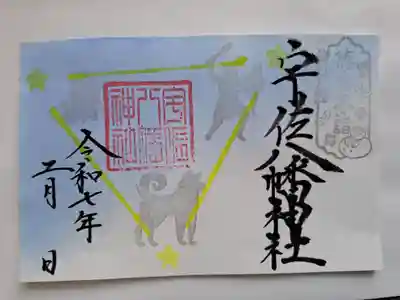 宇佐八幡神社
宇佐
八幡
神社
令和七年
二月 日